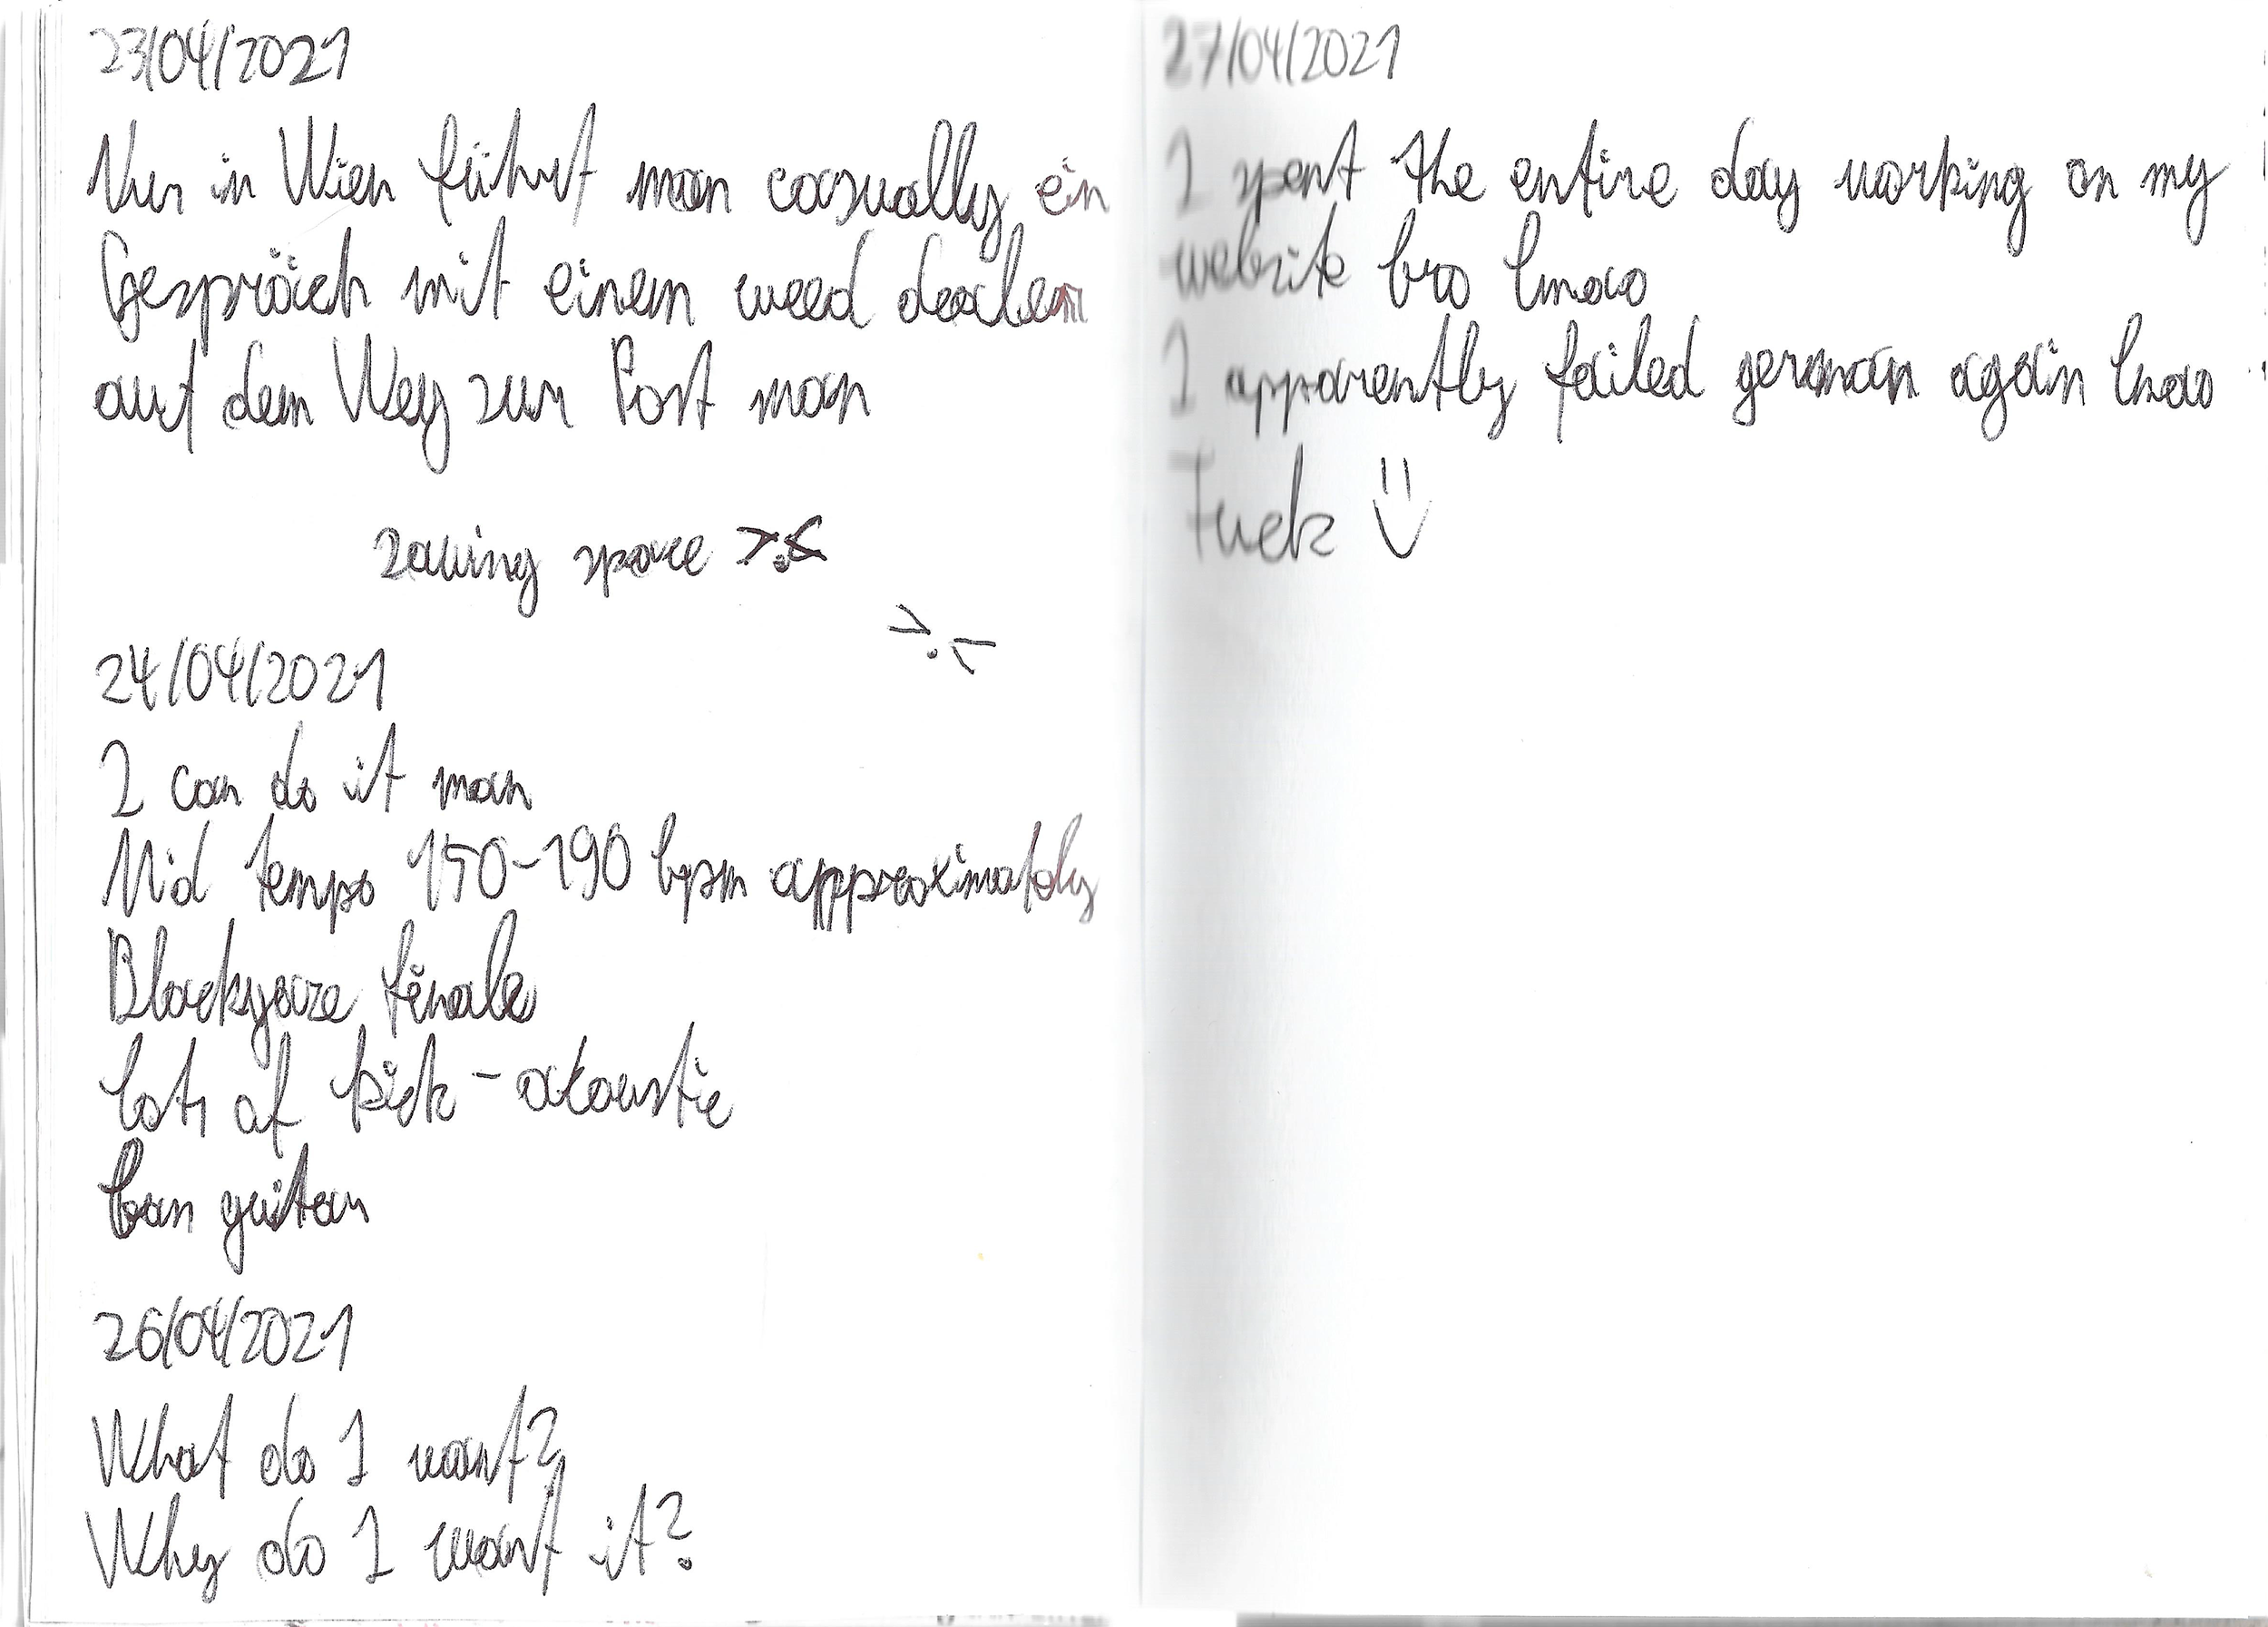 23/04/2021
Nur in Wien führt man casually ein
Gespräch mit einem weed dealer
auf dem Weg zur Post man
Saving space >.<
>.<
24/04/2021
I can do it man
Mid tempo 150-190 bpm approximatly
Blackgaze finale
lots of kick - akoustic
ban guitar
26/04/2021
What do I want?
Why do I want it?
27/04/2021
I spent the entire day working on my
website bro lmao
I apparently failed german again lmao
Fuck :)